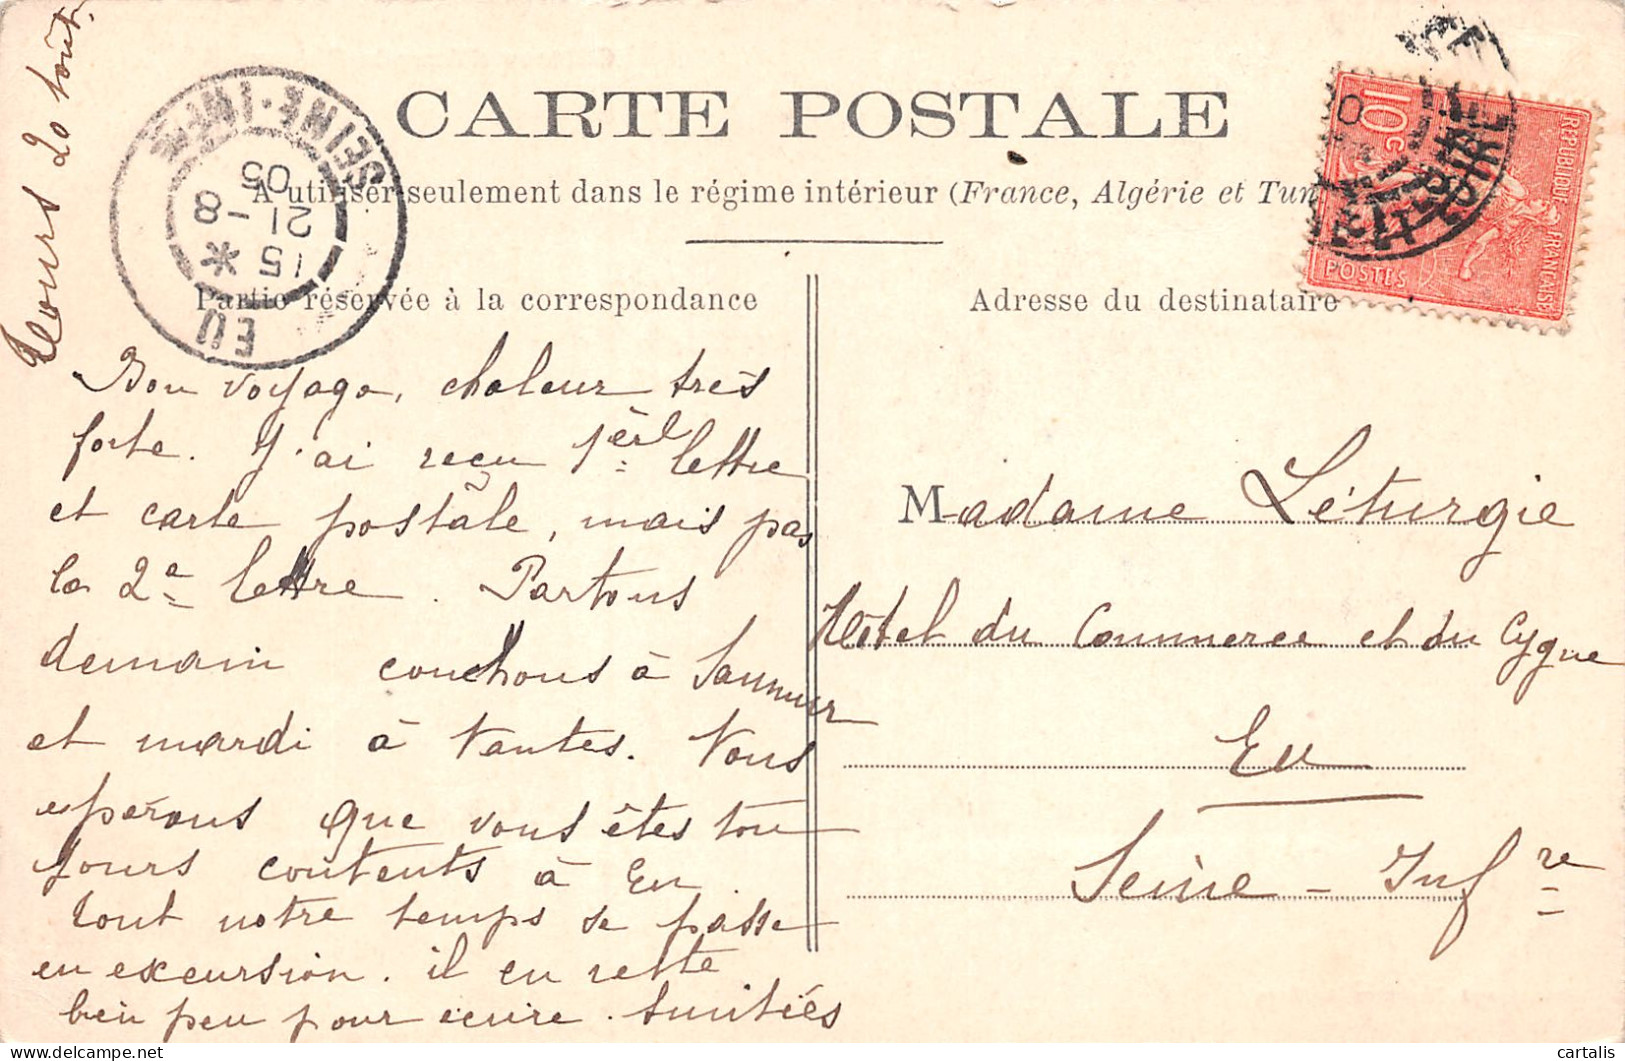 Tours 20 août.
CARTE POSTALE
A utiliser seulement dans le régime intérieur (France, Algérie et Tun
Partie réservée à la correspondance
Adresse du destinataire
SEINE-INF
15 *
21 - 8
05
EU
10c
REPUBLIQUE FRANÇAISE
POSTES
Bon voyage, chaleur très
forte. J'ai reçu 1ère lettre
et carte postale, mais pas
la 2e lettre. Partons
demain couchons à Saumur
et mardi à Nantes. Nous
espérons que vous êtes tou
jours contents à Eu.
tout notre temps se passe
en excursion. il en reste
bien peu pour écrire. Amitiés
Madame Léturgie
Hôtel du Commerce et du Cygne
Eu
Seine-Infre
cartalis